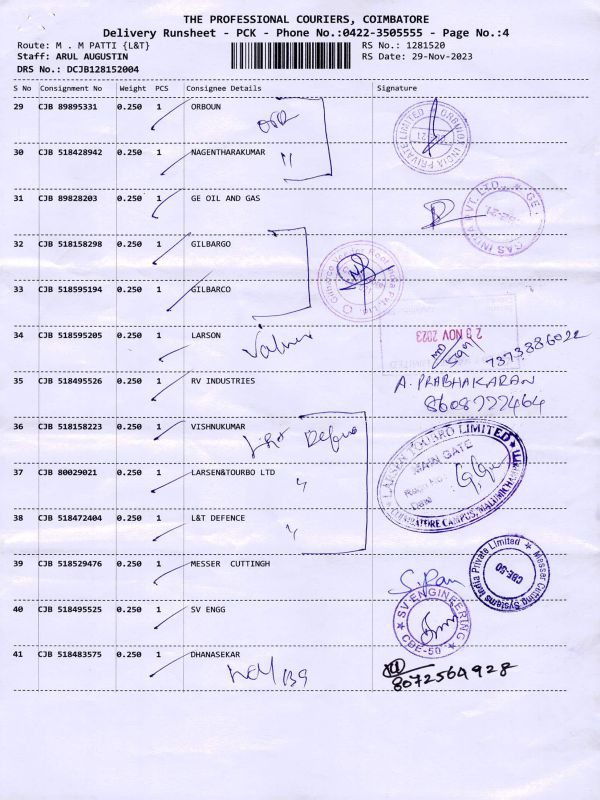 THE PROFESSIONAL COURIERS, COIMBATORE
Delivery Runsheet - PCK - Phone No.:0422-3505555 - Page No.:4
Route: M . M PATTI {L&T} RS No.: 1281520
Staff: ARUL AUGUSTIN RS Date: 29-Nov-2023
DRS No.: DCJB128152004
S No Consignment No Weight PCS Consignee Details Signature
29 CJB 89895331 0.250 1 ORBOUN
30 CJB 518428942 0.250 1 NAGENTHARAKUMAR
31 CJB 89828203 0.250 1 GE OIL AND GAS
32 CJB 518158298 0.250 1 GILBARGO
33 CJB 518595194 0.250 1 GILBARCO
34 CJB 518595205 0.250 1 LARSON
29 NOV 2023
7373886022
35 CJB 518495526 0.250 1 RV INDUSTRIES A. PRABHAKARAN
8608777464
36 CJB 518158223 0.250 1 VISHNUKUMAR
LARSEN TOUBRO LIMITED
MAIN GATE
37 CJB 80029021 0.250 1 LARSEN&TOURBO LTD
38 CJB 518472404 0.250 1 L&T DEFENCE
39 CJB 518529476 0.250 1 MESSER CUTTINGH
Messer Cutting Systems India Private Limited
CBE-50
40 CJB 518495525 0.250 1 SV ENGG
SV ENGINEERING
CBE-50
41 CJB 518483575 0.250 1 DHANASEKAR
8072564928